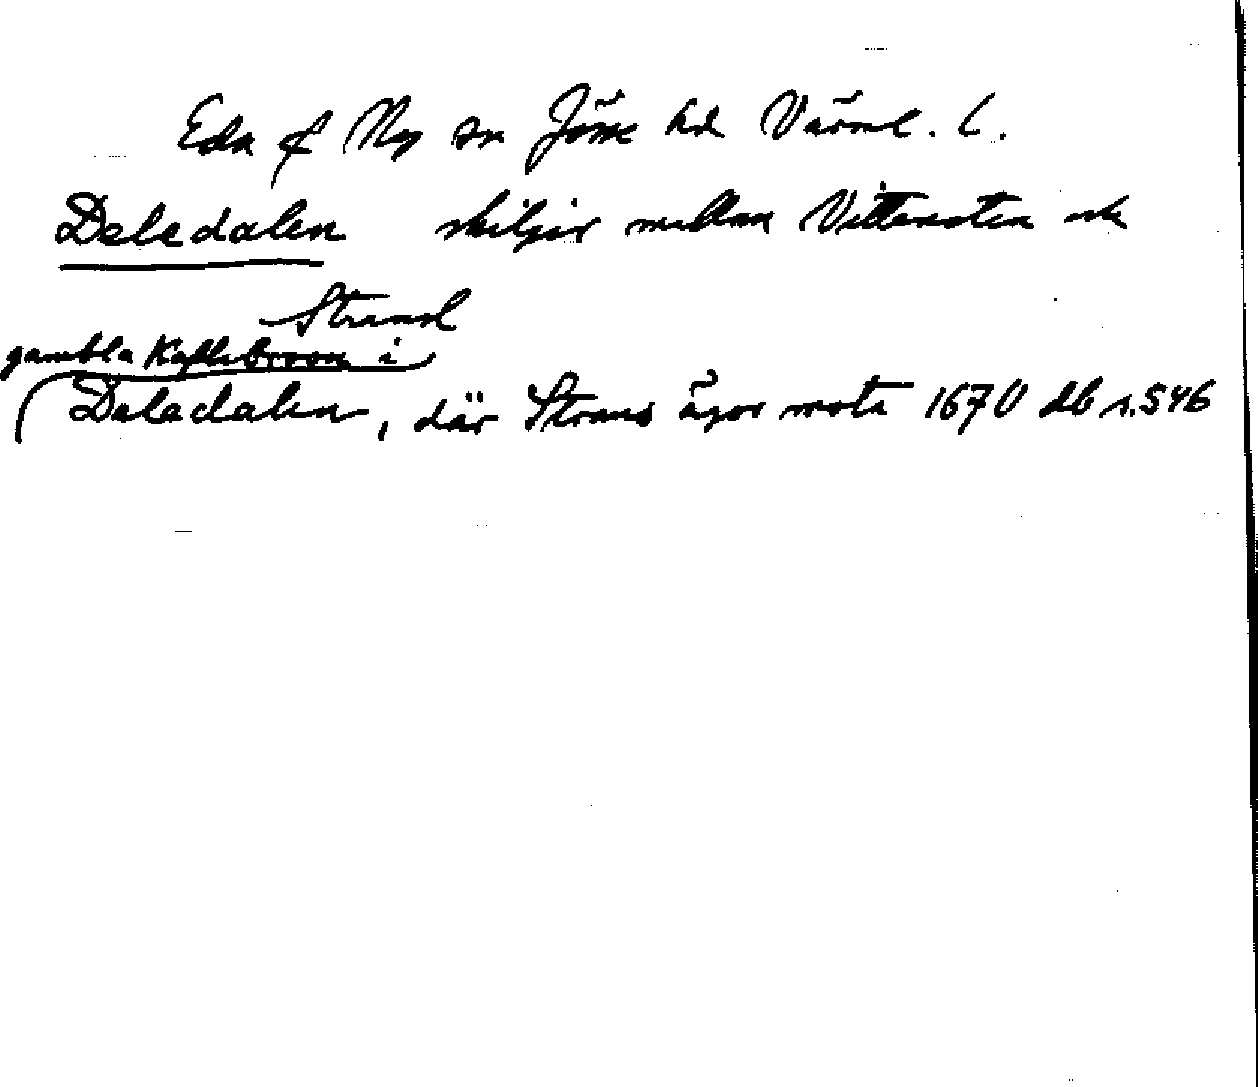 Eda f Ny sn Jösse hd Värml. L.
Deledalen skiljer mellan Vittensten och
Strand
gambla Kaflebroon i
Deledalen, där Strans ägor möta 1670 db s.546